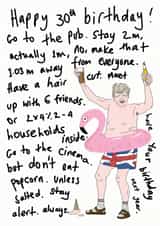 Happy 30th birthday!
Go to the pub. Stay 2m,
actually 1m, no, make that
1.03m away from everyone.
Have a hair cut. Meet
up with 6 friends.
or 2x9%2-4
households inside.
Go to the cinema.
but don't eat
popcorn. Unless
salted. Stay
alert. always.
your birthday
last year.